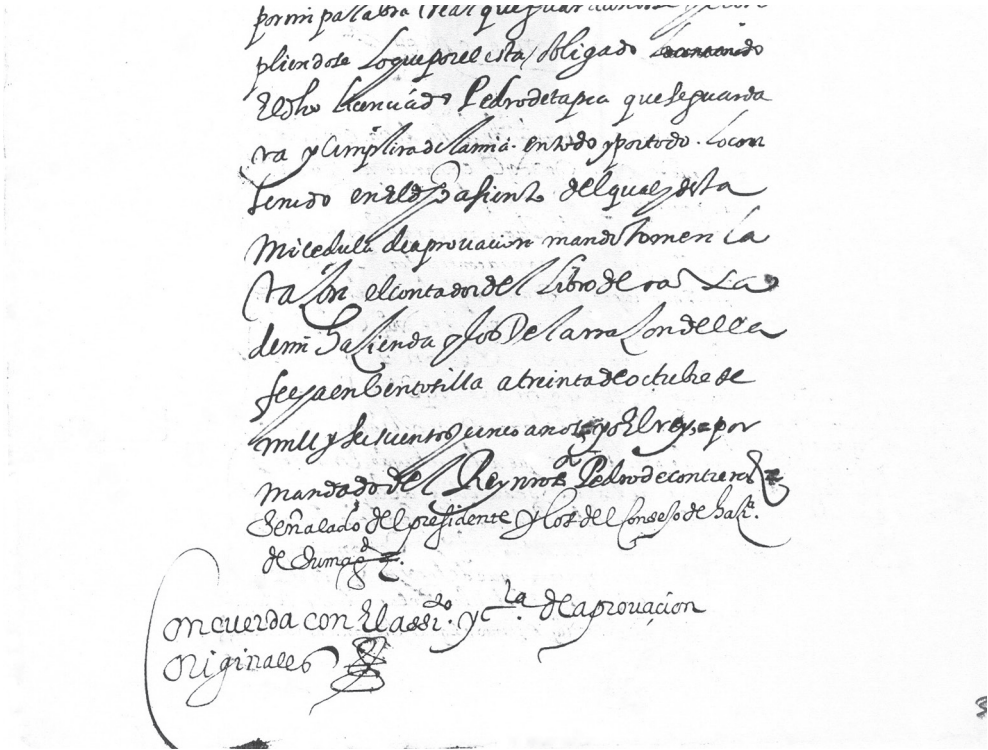 por mi palabra Real que guardandose y cum
pliendose lo que por el esta obligado
El dho licenciado Pedro de tapia que se guarda
ra y cumplira de la mia en todo y por todo lo con
tenido en el dho asiento del qual y desta
mi cedula de aprouacion mando tomen la
raçon el contador del libro de raçon de
de mi hazienda y los de la razon de ella
fecha en Bentosilla a treinta de octubre de
mill y seiscientos y cinco anos yo El rey por
mandado del Rey nro sr Pedro de contreras
Señalado del presidente y los del Consejo de hazda.
de su magd.
Concuerda con El assto. y cla. de aprouaçion
originales